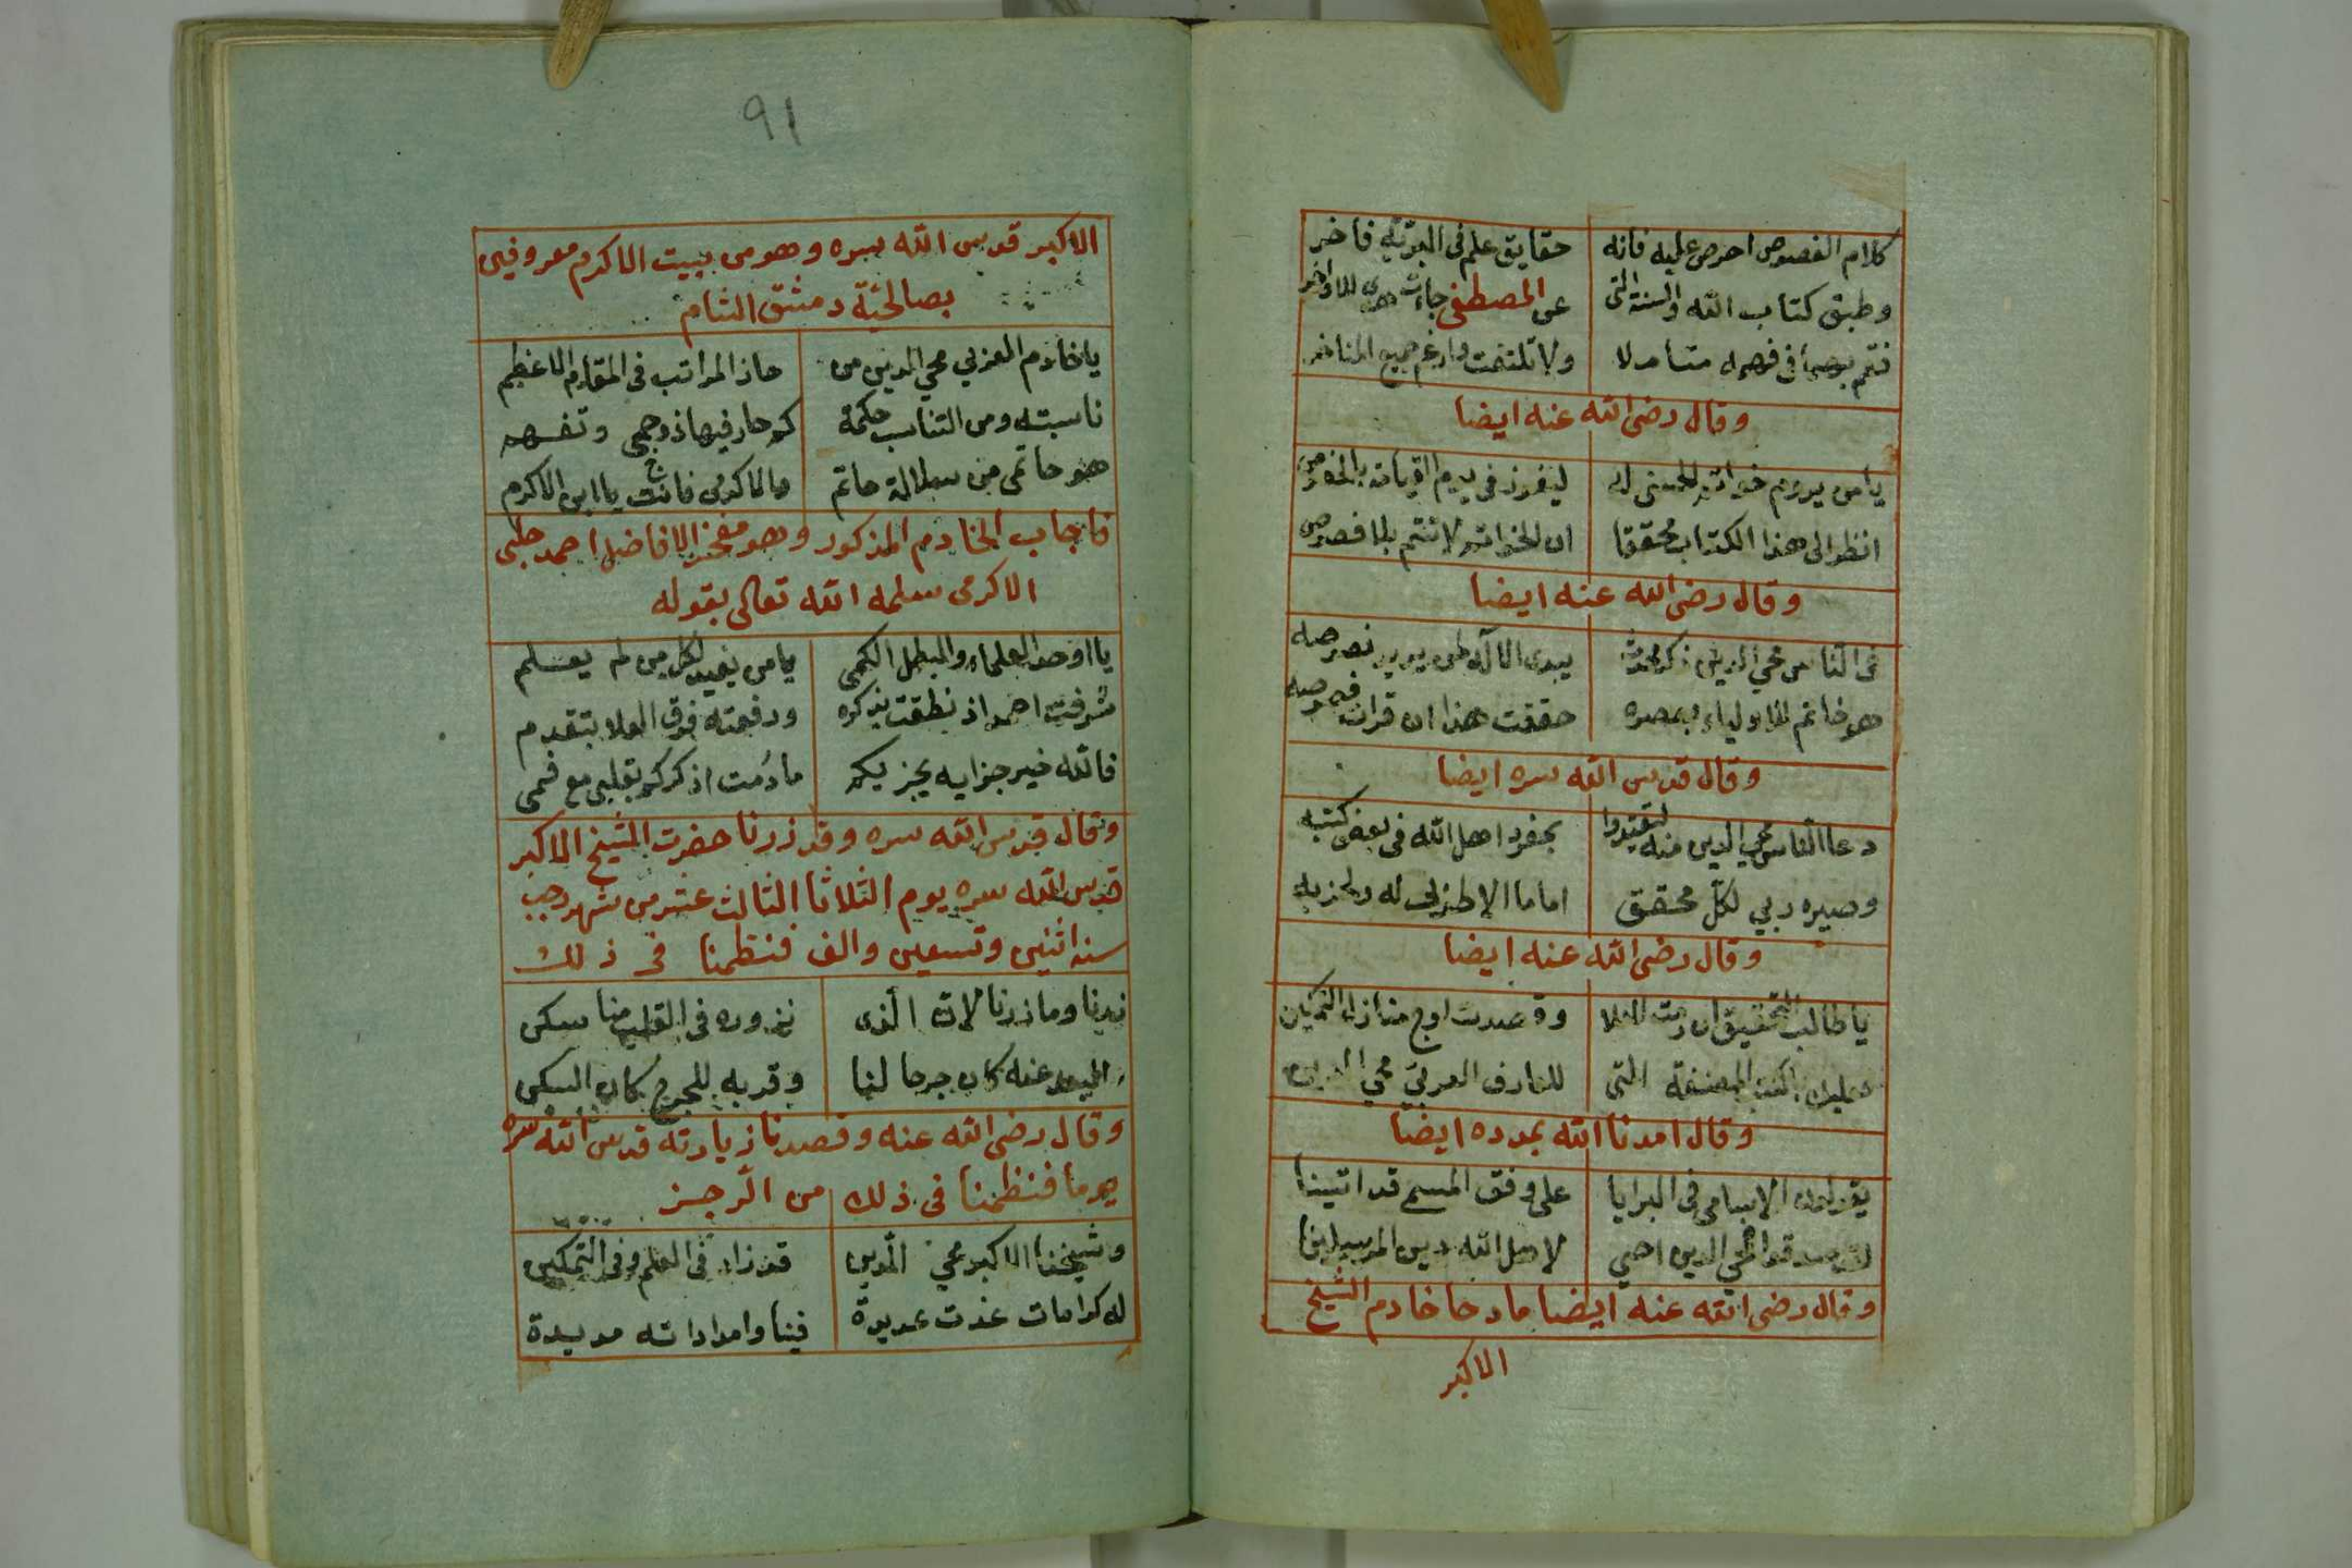 كلام الفصوص احرص عليه فانه حقايق علم فى البرية فاخر
وطبق كتاب الله والسنة التى عن المصطفى جاءت هدى للاواخر
متأملا ولا تلتفت وارغم جميع المناخر
وقال رضى الله عنه ايضا
يا من يروم خواتم الحسنى له ليفوز فى يوم القيامة بالخصوص
انظر الى هذا الكتاب محققا ان الخواتم لا تتم بلا فصوص
وقال رضى الله عنه ايضا
فى الناس محي الدين ذكر محدث يبدى اللآلى من يريد نصوصه
هو خاتم للاولياء بعصره حققت هذا ان قرات فصوصه
وقال قدس الله سره ايضا
دعا الناس محي الدين منه ليقتدوا بجفر اهل الله فى بعض كتبه
وصيره ربي لكل محقق اماما الا طوبى له ولحزبه
وقال رضى الله عنه ايضا
يا طالب التحقيق ان رمت العلا وقصدت اوج منازل التمكين
فعليك بالكتب المصنفة التى للعارف العربي محي الدين
وقال امدنا الله بمدده ايضا
يقولون الاسامى فى البرايا على وفق المسمى قد اتينا
لقد صدقوا محي الدين احيى لاهل الله دين المرسلينا
وقال رضى الله عنه ايضا مادحا خادم الشيخ
الاكبر
91
الاكبر قدس الله سره وهو من بيت الاكرم معروفين
بصالحية دمشق الشام
يا خادم العربي محي الدين من حاز المراتب فى المقام الاعظم
ناسبته ومن التناسب حكمة كم حار فيها ذو حجى وتفهم
هو حاتمى من سلالة حاتم والاكرمى فانت يا ابن الاكرم
فاجاب الخادم المذكور وهو مفخر الافاضل احمد جلبى
الاكرمى سلمه الله تعالى بقوله
يا اوحد العلماء والبطل الكمى يا من يفيد لكل من لم يعلم
شرفت احمد اذ نطقت بذكره ورفعته فوق العلا بتقدم
فالله خير جزايه يجزيكم ما دُمت اذكركم بقلبى مع فمى
وقال قدس الله سره وقد زرنا حضرت الشيخ الاكبر
قدس الله سره يوم الثلاثا الثالث عشر من شهر رجب
سنة اثنين وتسعين والف فنظمنا فى ذلك
زرنا وما زرنا لان الذى نزوره فى القلب منا سكن
البعد عنه كان جرحا لنا وقربه للجرح كان السكن
وقال رضى الله عنه وقصدنا زيارته قدس الله سره
يوما فنظمنا فى ذلك من الرجز
وشيخنا الاكبر محي الدين قد زاد فى العلم وفى التمكين
له كرامات غدت عديدة فينا وامداداته مديدة